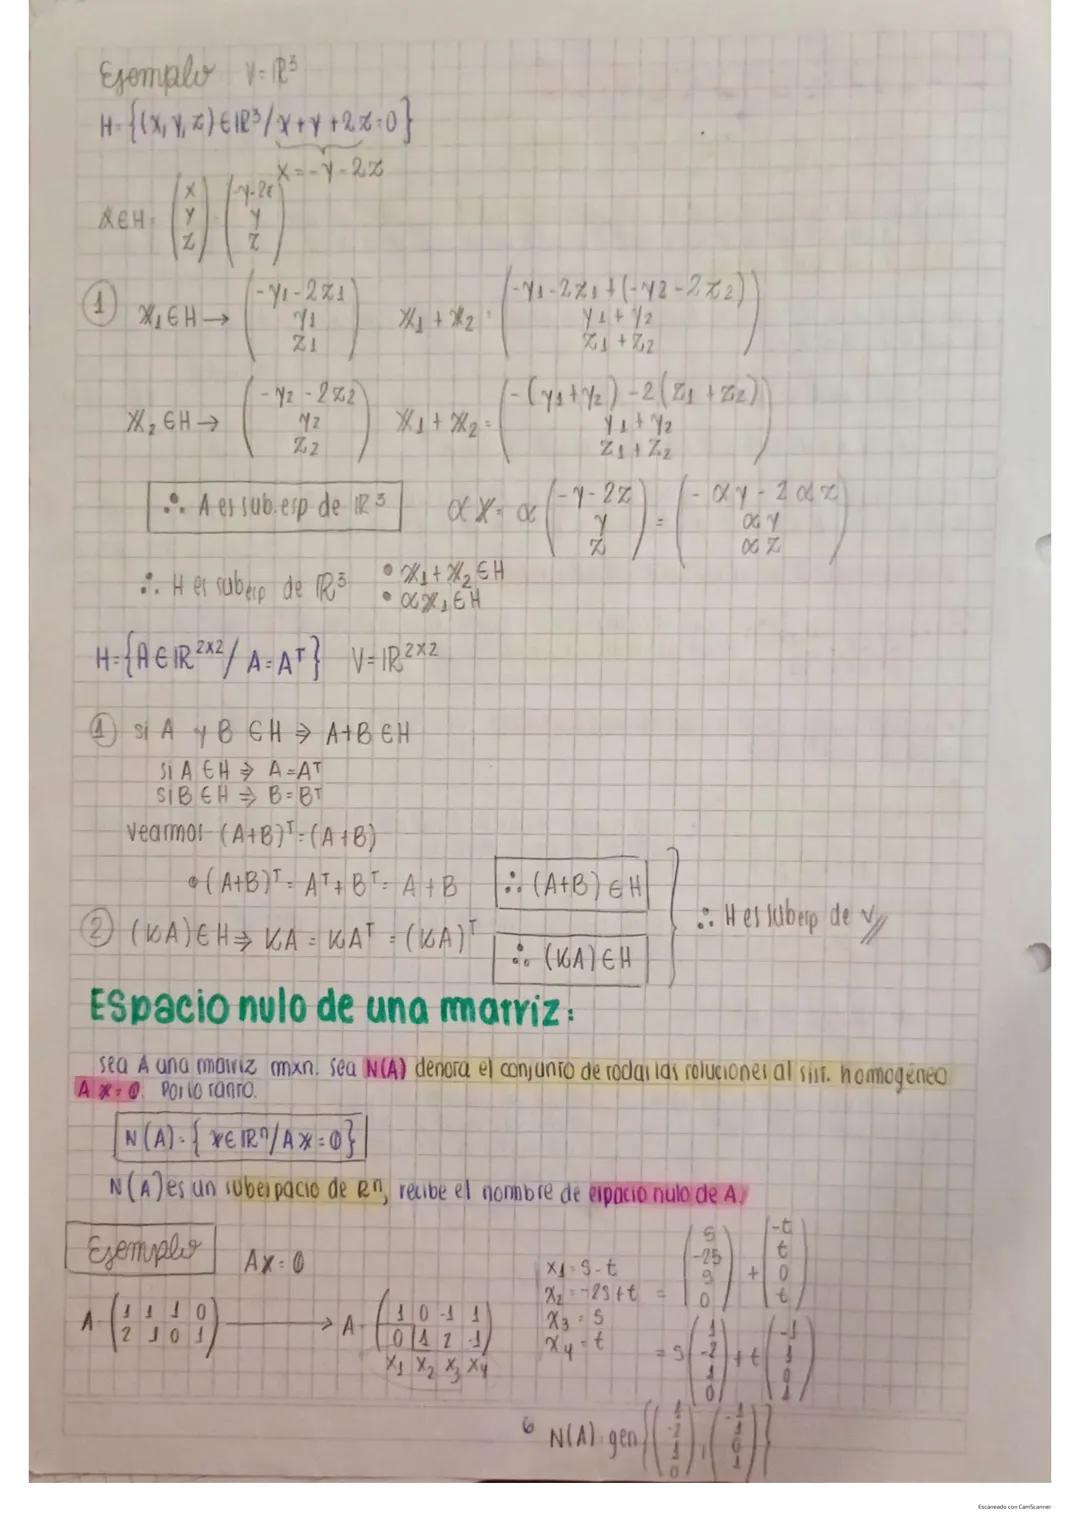 Ejemplo V=ℝ³
H={(x,y,z)∈ℝ³/x+y+2z=0}
x=-y-2z
x∈H= (x y z) = (-y-2z y z)
① x₁∈H→ (-y₁-2z₁ y₁ z₁) x₁+x₂= (-y₁-2z₁+(-y₂-2z₂) y₁+y₂ z₁+z₂)
x₂∈H→ (-y₂-2z₂ y₂ z₂) x₁+x₂= (-(y₁+y₂)-2(z₁+z₂) y₁+y₂ z₁+z₂)
∴ A es sub.esp de ℝ³ αx=α (-y-2z y z) = (-αy-2αz αy αz)
∴ H es subesp de ℝ³ • x₁+x₂∈H
• αx₁∈H
H={A∈ℝ²ˣ²/A=Aᵀ} V=ℝ²ˣ²
① si A y B∈H⇒A+B∈H
si A∈H⇒ A=Aᵀ
si B∈H⇒ B=Bᵀ
veamos (A+B)ᵀ=(A+B)
•(A+B)ᵀ=Aᵀ+Bᵀ=A+B ∴(A+B)∈H
② (KA)∈H⇒KA=KAᵀ=(KA)ᵀ ∴(KA)∈H
∴ H es subesp de V//
Espacio nulo de una matriz:
sea A una matriz mxn. sea N(A) denota el conjunto de todas las soluciones al sist. homogéneo
Ax=0. Por lo tanto.
N(A)={x∈ℝⁿ/Ax=0}
N(A) es un subespacio de Rⁿ, recibe el nombre de espacio nulo de A//
Ejemplo Ax=0
A= (1 1 1 0
2 1 0 1) → A= (1 0 -1 1
0 1 2 -1)
x₁ x₂ x₃ x₄
x₁=s-t
x₂=-2s+t
x₃=s
x₄=t
= (s -2s s 0) + (-t t 0 t)
=s (1 -2 1 0) +t (-1 1 0 1)
6 N(A)=gen{(1 -2 1 0), (-1 1 0 1)}
Escaneado con CamScanner